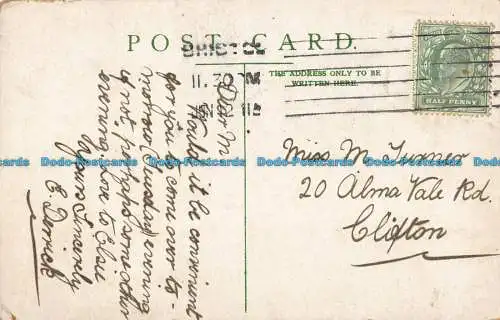 POST CARD.
THE ADDRESS ONLY TO BE
WRITTEN HERE.
BRISTOL
11.30 PM
11
HALF PENNY
Dear M
Would it be convenient
for you to come over to-
morrow (Sunday) evening
if not, perhaps some other
evening. Love to Elsie
Yours Sincerely
E Derrick
Miss M. Turner
20 Alma Vale Rd.
Clifton
Dodo Postcards Dodo Postcards Dodo Postcards Dodo Postcards Dodo Postcards